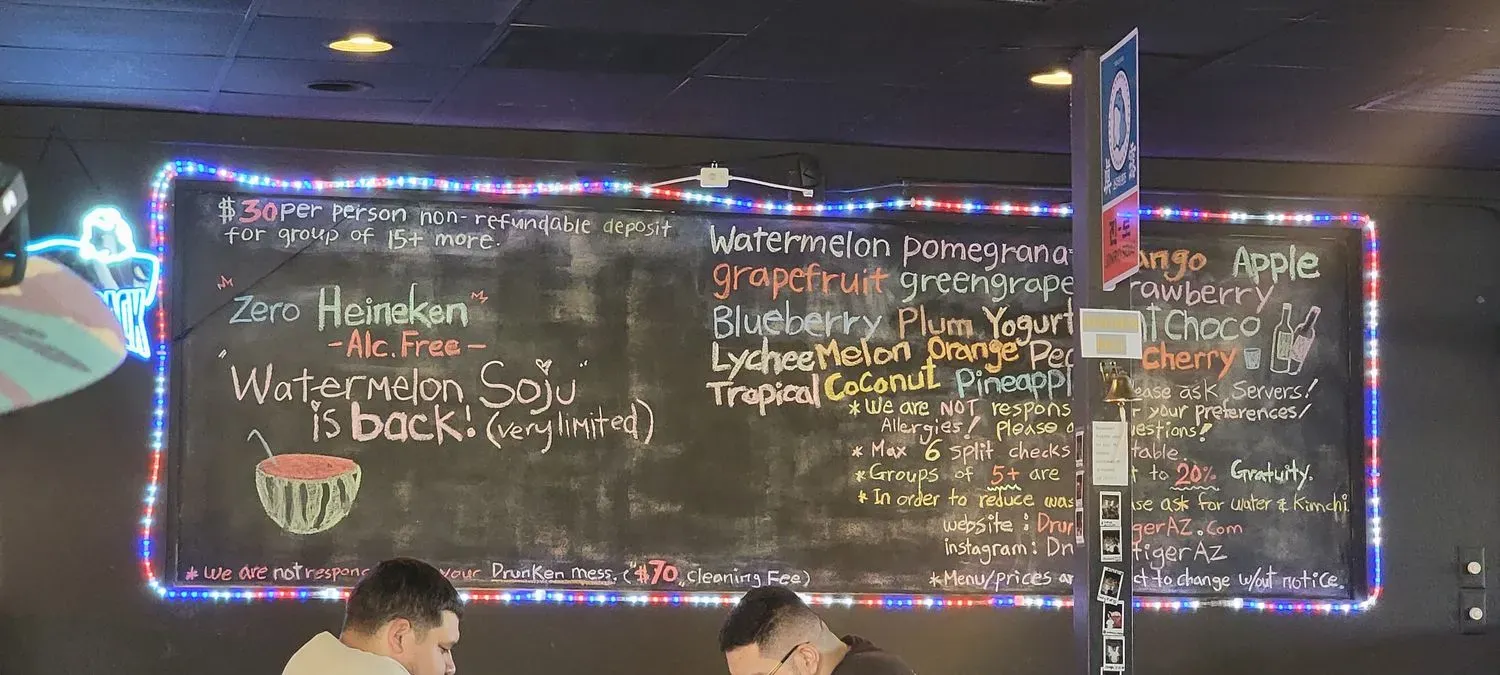 $30 per person non-refundable deposit
for group of 15+ more.
Zero Heineken
-Alc. Free-
"Watermelon Soju"
is back! (very limited)
* we are not respon your Drunken mess. ("$70" Cleaning Fee)
Watermelon pomegrana ango Apple
grapefruit greengrape rawberry
Blueberry Plum Yogurt t Choco
Lychee Melon Orange Pea Cherry
Tropical Coconut Pineappl
ease ask Servers!
*We are NOT respons r your preferences/
Allergies! Please a uestions!
* Max 6 split checks table.
*Groups of 5+ are t to 20% Gratuity.
*In order to reduce was se ask for water & Kimchi
website: Drun gerAZ.Com
instagram: Dr tigerAz
*Menu/prices ar ct to change w/out notice.